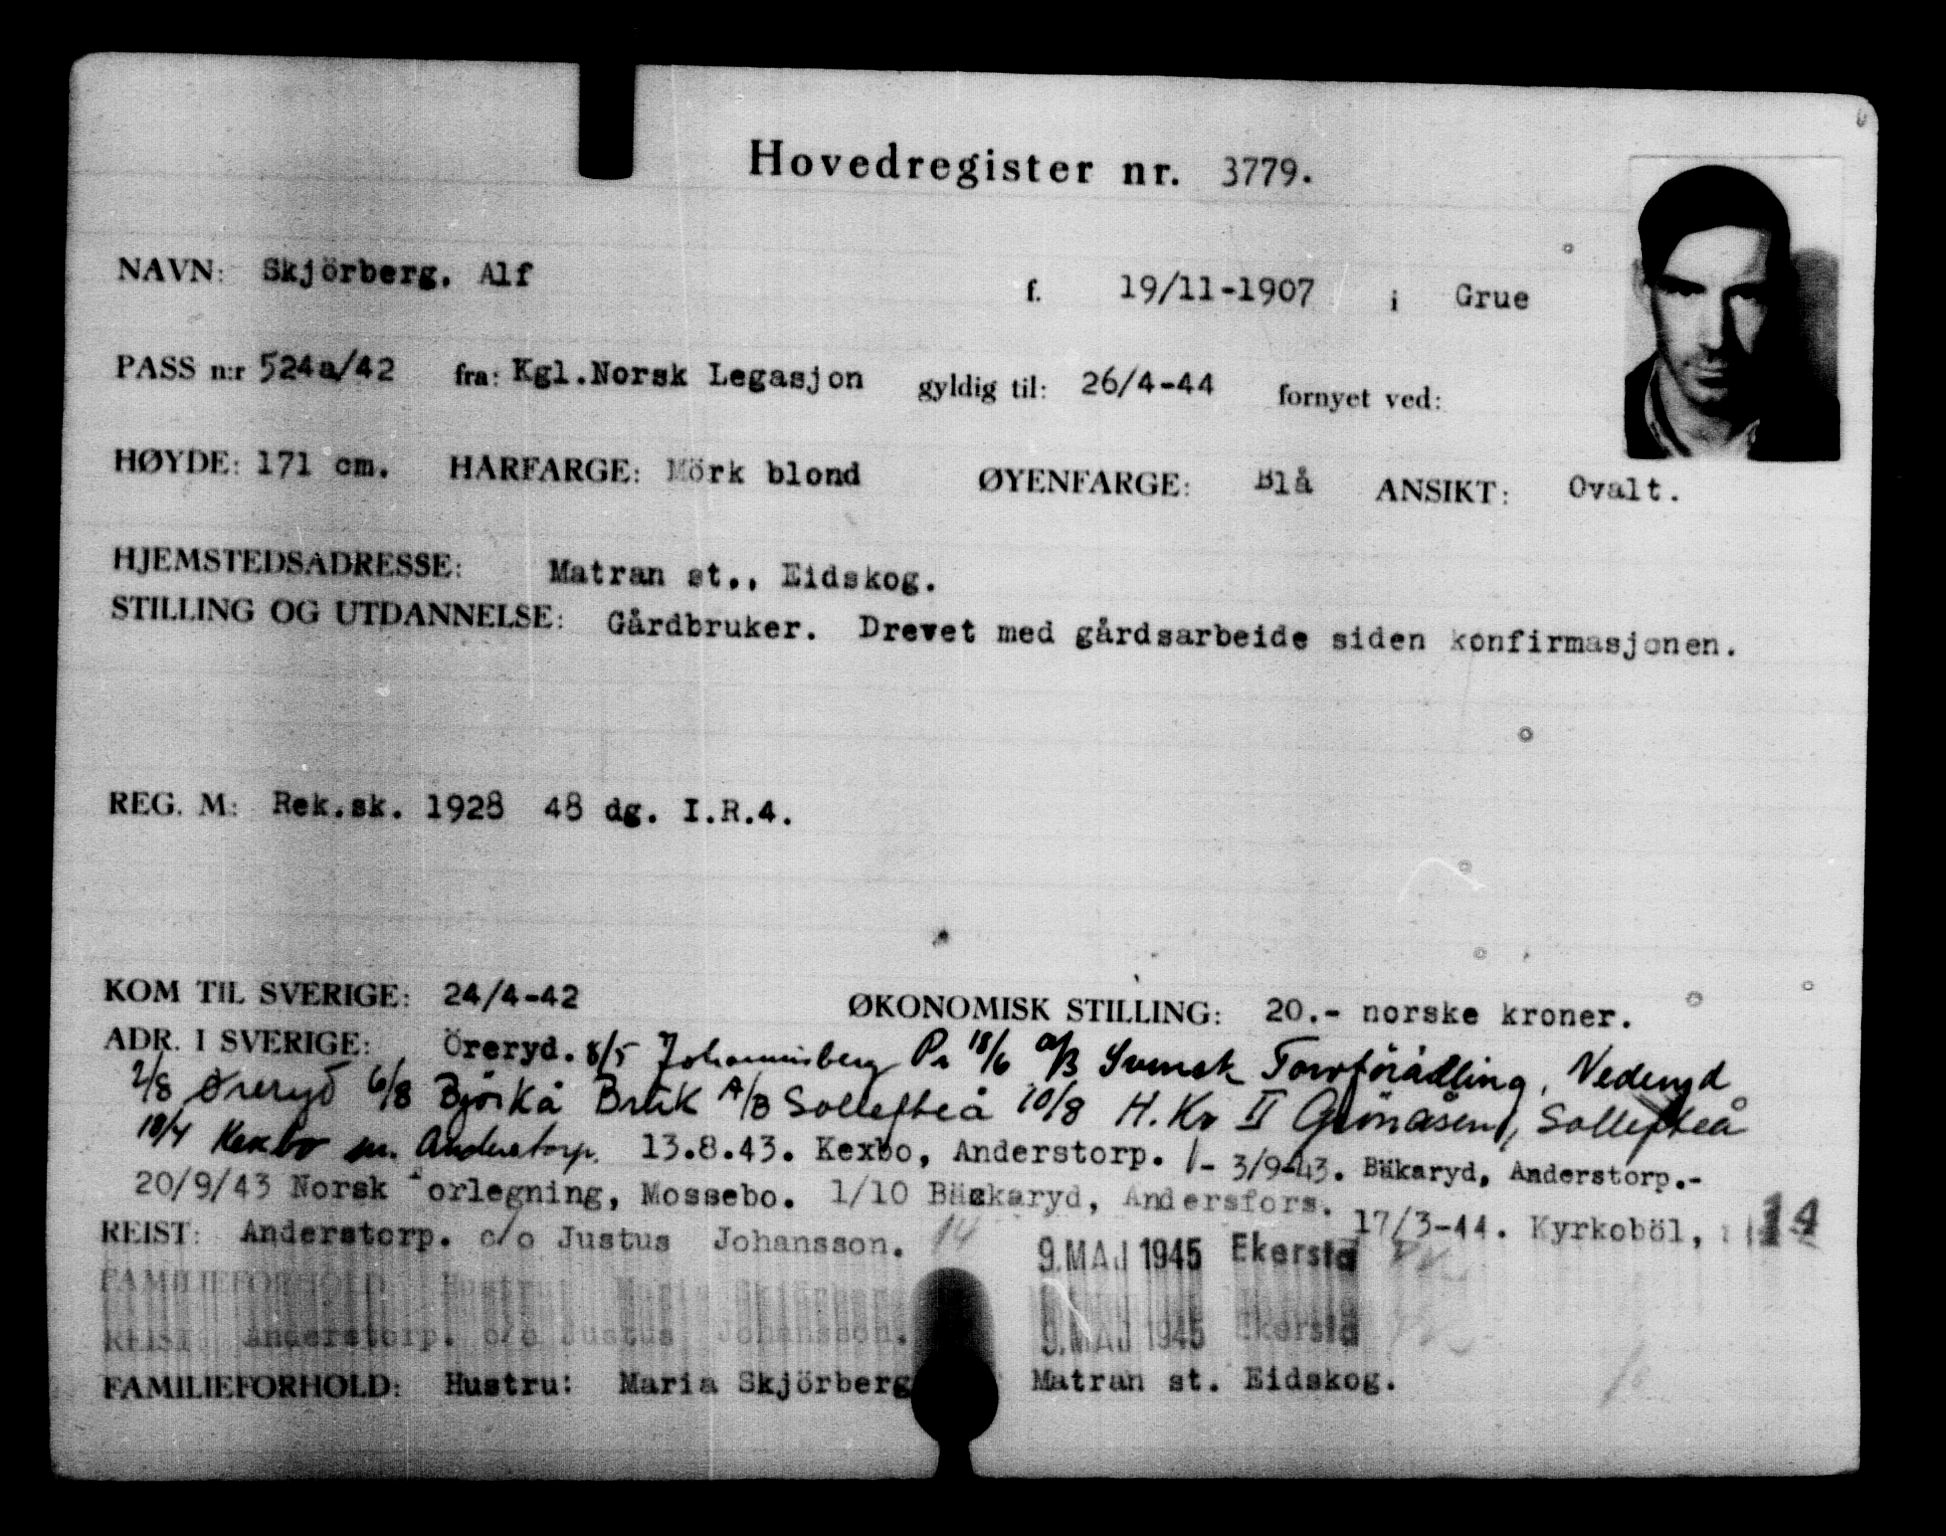 Hovedregister nr. 3779.
NAVN: Skjörberg, Alf f. 19/11-1907 i Grue
PASS n:r 524a/42 fra: Kgl.Norsk Legasjon gyldig til: 26/4-44 fornyet ved:
HØYDE: 171 cm. HARFARGE: Mörk blond ØYENFARGE: Blå ANSIKT: Ovalt.
HJEMSTEDSADRESSE: Matran st., Eidskog.
STILLING OG UTDANNELSE: Gårdbruker. Drevet med gårdsarbeide siden konfirmasjonen.
REG. M: Rek.sk. 1928 48 dg. I.R.4.
KOM TIL SVERIGE: 24/4-42 ØKONOMISK STILLING: 20.- norske kroner.
ADR. I SVERIGE: Öreryd. 8/5 Johannisberg 18/6 A/B Svensk Torvförädling, Vederyd
2/8 Øreryd 6/8 Björkå Bruk A/B Sollefteå 10/8 H. Kv II Grönåsen, Sollefteå
18/4 Kexbo Anderstorp. 13.8.43. Kexbo, Anderstorp. 3/9-43. Bäkaryd, Anderstorp.-
20/9/43 Norsk orlegning, Mossebo. 1/10 Bäckaryd, Andersfors. 17/3-44. Kyrkoböl, 14
REIST: Anderstorp. c/o Justus Johansson. 14 9. MAJ 1945 Ekersta
FAMILIEFORHOLD: Hustru: Maria Skjörberg
REIST: Anderstorp. c/o Justus Johansson. 9. MAJ 1945 Ekersta
FAMILIEFORHOLD: Hustru: Maria Skjörberg Matran st. Eidskog.